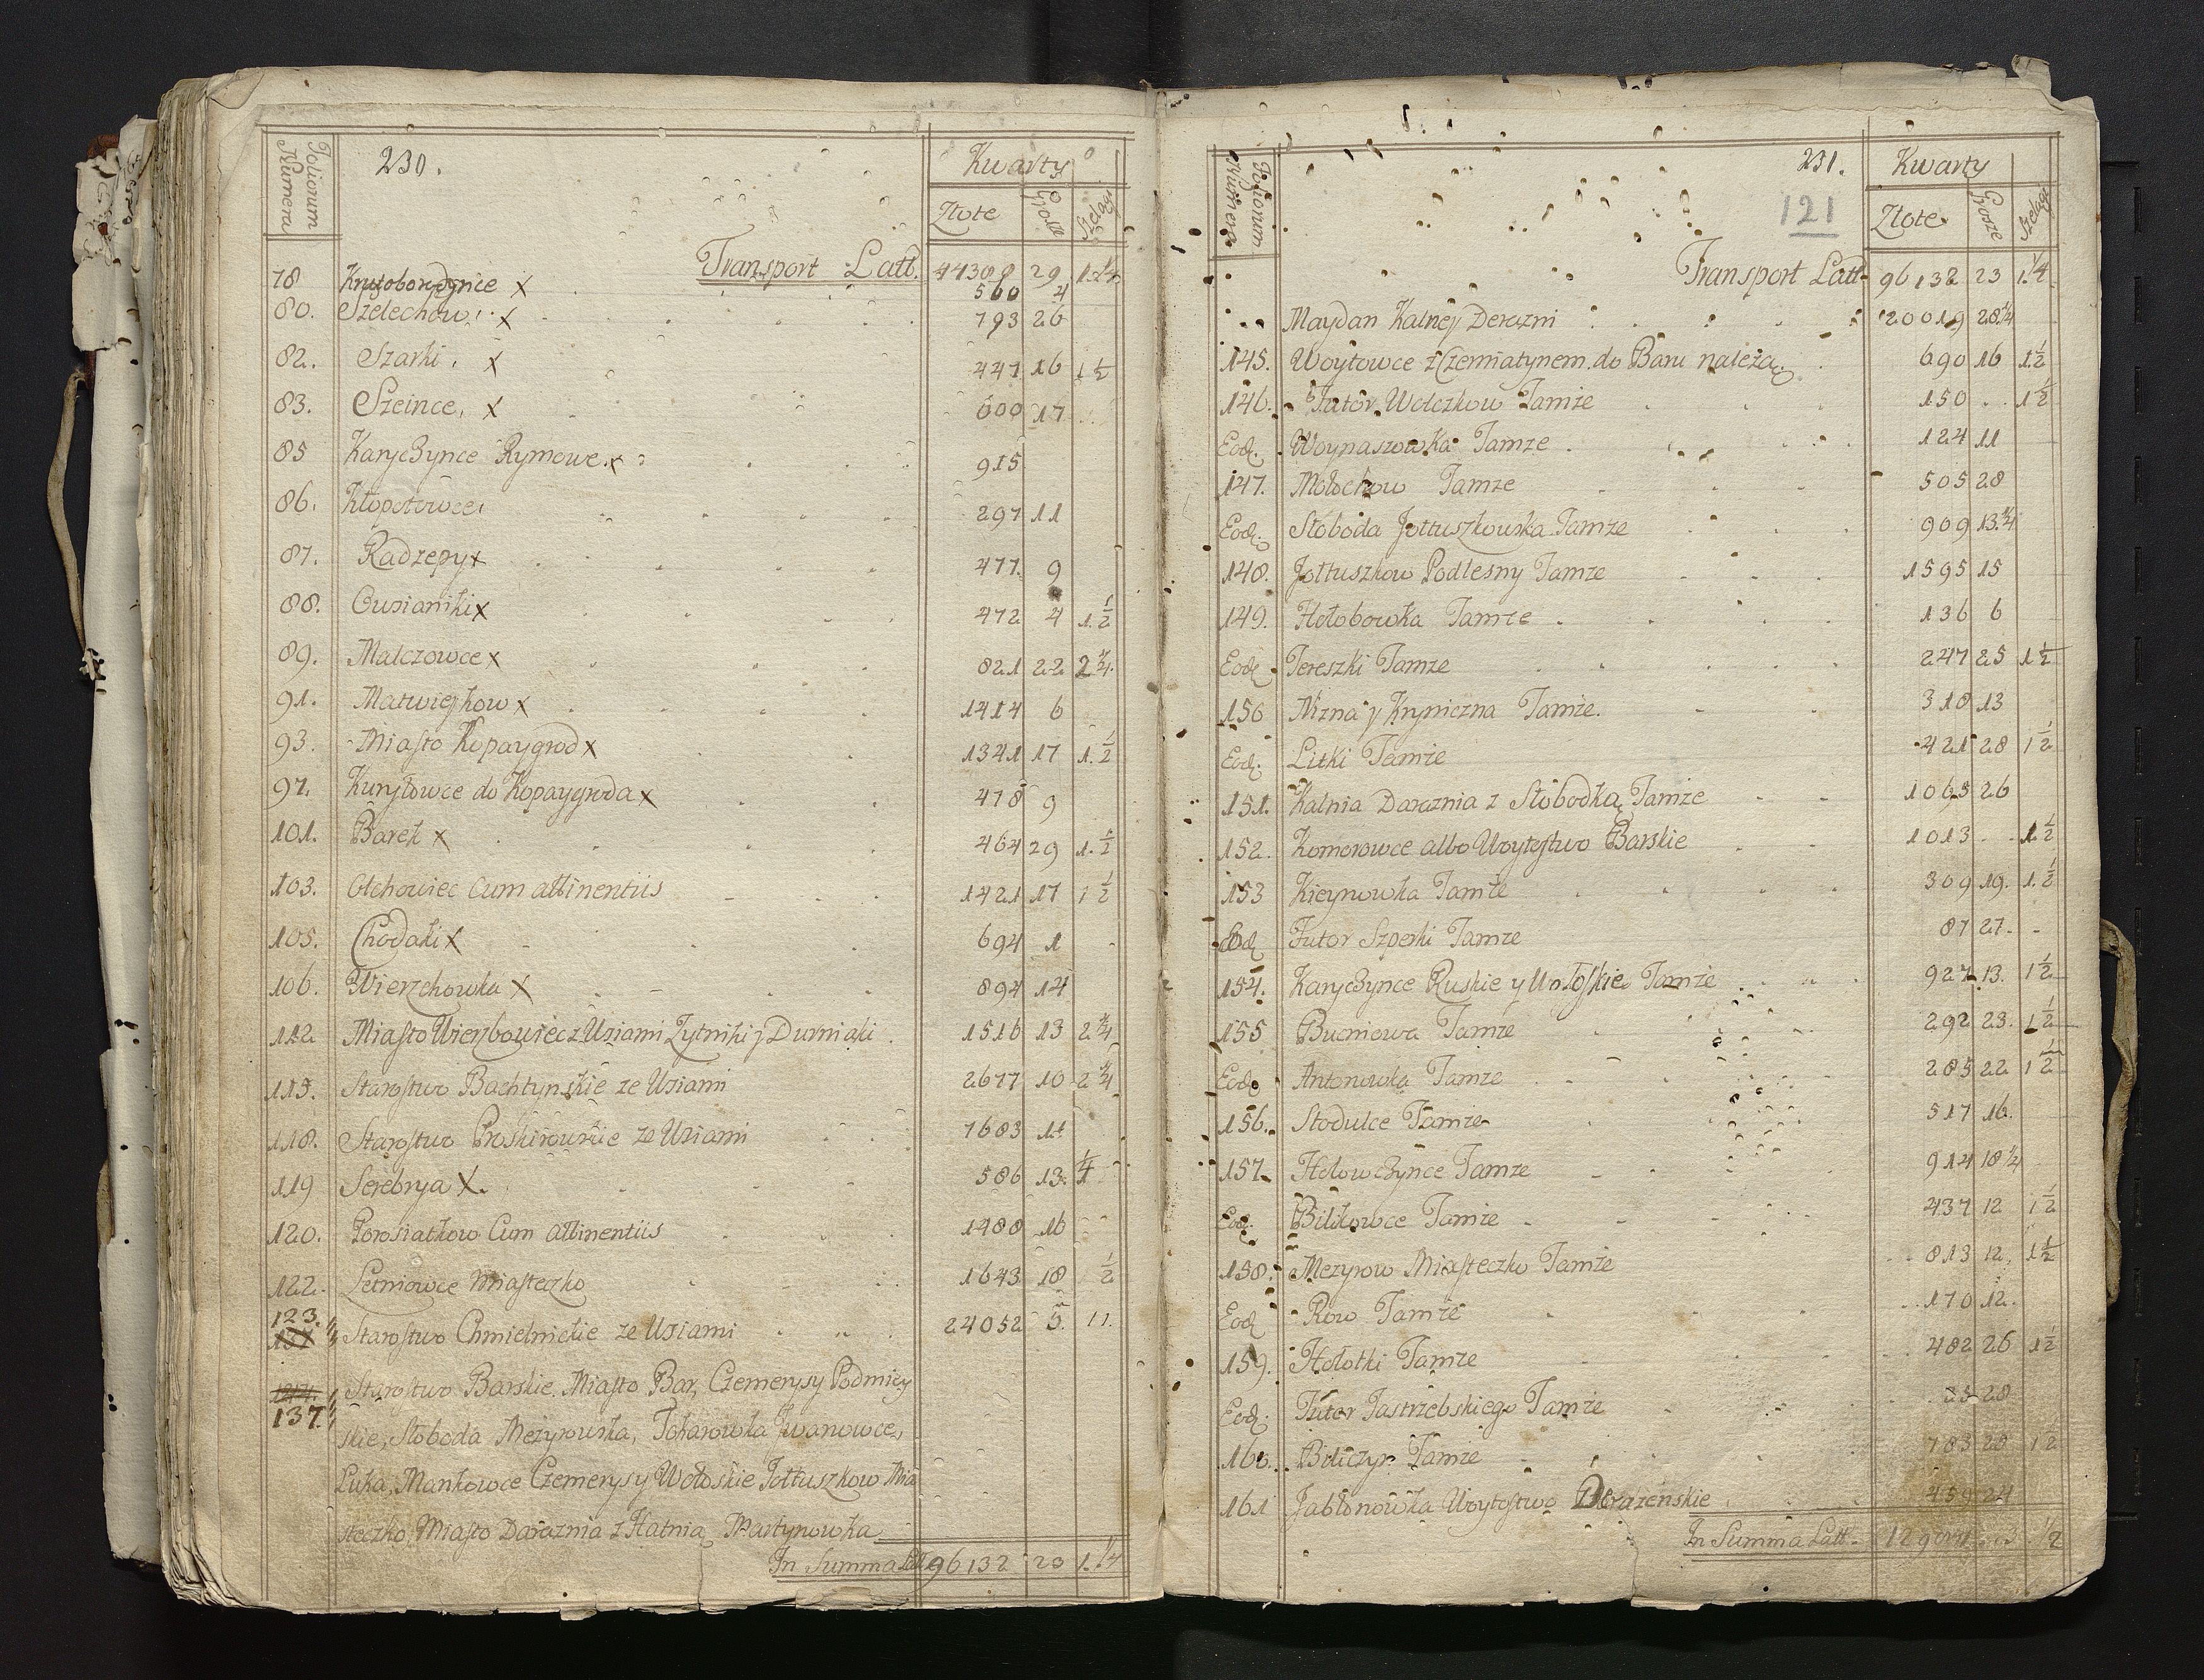 230.
Foliorum Numera
Kwarty
Złote Grosze Szelągi
Transport Latt. 44388 29 1.1/4
78 Krutoborodynce x 560 4
80. Szelechow. x 793 26
82. Szarki. x 447 16 1 1/2
83. Szeince, x 600 17
85 Karyczynce Rymowe x 915
86. Kłopotowce, 297 11
87. Radzepy x 477. 9
88. Gusianiki x 472 4 1.1/2
89. Malczowce x 821 22 2 1/4.
91. Matwieykow x 1414 6
93. Miasto Kopaygrod x 1341 17 1.1/2
97. Kuryłowce do Kopaygroda x 478 9
101. Barek x 464 29 1.1/2
103. Olchowiec Cum attinentiis 1421 17 1 1/2
105. Chodaki x 694 1
106. Wierzchowka x 894 14
112 Miasto Wierzbowiec z Wsiami Zytniki y Durniaki 1516 13 2 1/4
115. Starostwo Bachtynskie ze Wsiami 2677 10 2 1/4
118. Starostwo Proskirowskie ze Wsiami 7683 11
119 Serebrya x. 586 13. 1/4
120. Porosiatkow Cum attinentiis 1488 16
122. Letniowce Miasteczko 1643 18 1/2
123. Starostwo Chmielnickie ze Wsiami 24052 5. 11.
137. Starostwo Barskie. Miasto Bar, Czemerysy Podmiey
skie, Słoboda Mezyrowska, Tokarowka Iwanowce,
Łuka, Mankowce Czemerysy Wołoskie Jołtuszkow Mia
steczko, Miasto Daraznia z Hatnią Martynowka
In Summa Latt. 96132 23 1.1/4
231.
121
Foliorum Numera
Kwarty
Złote Grosze Szelągi
Transport Latt. 96132 23 1.1/4
Maydan Kalney Derazni 20019 28 1/4
145. Woytowce z Czerniatynem do Baru należą 690 16 1.1/2
146. Futor Wolczkow Tamże 150 . . 1 1/2
Eod. Woynaszowka Tamze 124 11
147. Mołochow Tamze 505 28
Eod. Słoboda Jołtuszkowska Tamże 909 13.1/4
148. Jołtuszkow Podlesny Tamze 1595 15
149. Hołobowka Tamze 136 6
Eod Tereszki Tamze 247 25 1 1/2
150 Nizna y Kryniczna Tamże. 318 13
Eod. Litki Tamże 421 28 1 1/2
151. Kalnia Daraznia z Słobodką Tamze 1065 26
152. Komorowce albo Woytostwo Barskie 1013 . . 1 1/2
153 Kieynowka Tamże 309 19. 1.1/2
Eod Futor Szperki Tamze 87 27.
154. Karyczynce Ruskie y Wołoskie Tamże 927 13. 1 1/2
155 Bucniowa Tamze 292 23. 1 1/2
Eod. Antonowka Tamze 285 22 1 1/2
156. Stodulce Tamże 517 16.
157. Hołowczynce Tamze 914 18 1/4
Eod. Bilikowce Tamże 437 12 1 1/2
158. Mezyrow Miasteczko Tamże 813 12. 1 1/2
Eod Row Tamże 170 12.
159. Hołotki Tamze 482 26 1 1/2
Eod. Futor Jastrzebskiego Tamże 28
160. Biliczyn Tamże 783 28 1 1/2
161 Jabłonowka Woytostwo Derazenskie 459 24
In Summa Latt. 3 1/2